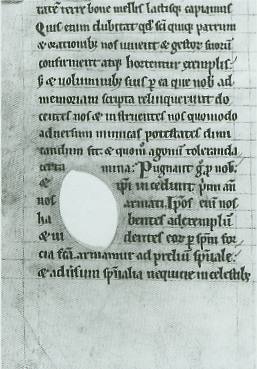 tatē terre bone mellis lactisq; capiamus
Quis enim dubitat qđ sc̄i quiq; patrum
& orationibus nos iuuent & gestoꝝ suoꝝ
confirment atq; hortentur exemplis.
S; & uoluminibus suis p ea que nob̄ ad
memoriam scripta reliquerunt do
centes nos & instruentes nos quomodo
aduersum inimicas potestates dimi
candum sit & quom̄ agonū toleranda
certa mina: Pugnant g̊ p nob̄.
& ip̄i incedunt p̄mi an
nos armati. Ip̄os eni nos
ha bentes ad exemplū
& ui dentes eoꝝ p sp̄m for
cia fc̄a. armamur ad prelium sp̄uale
& aduersum sp̄ualia nequitie in celestib;